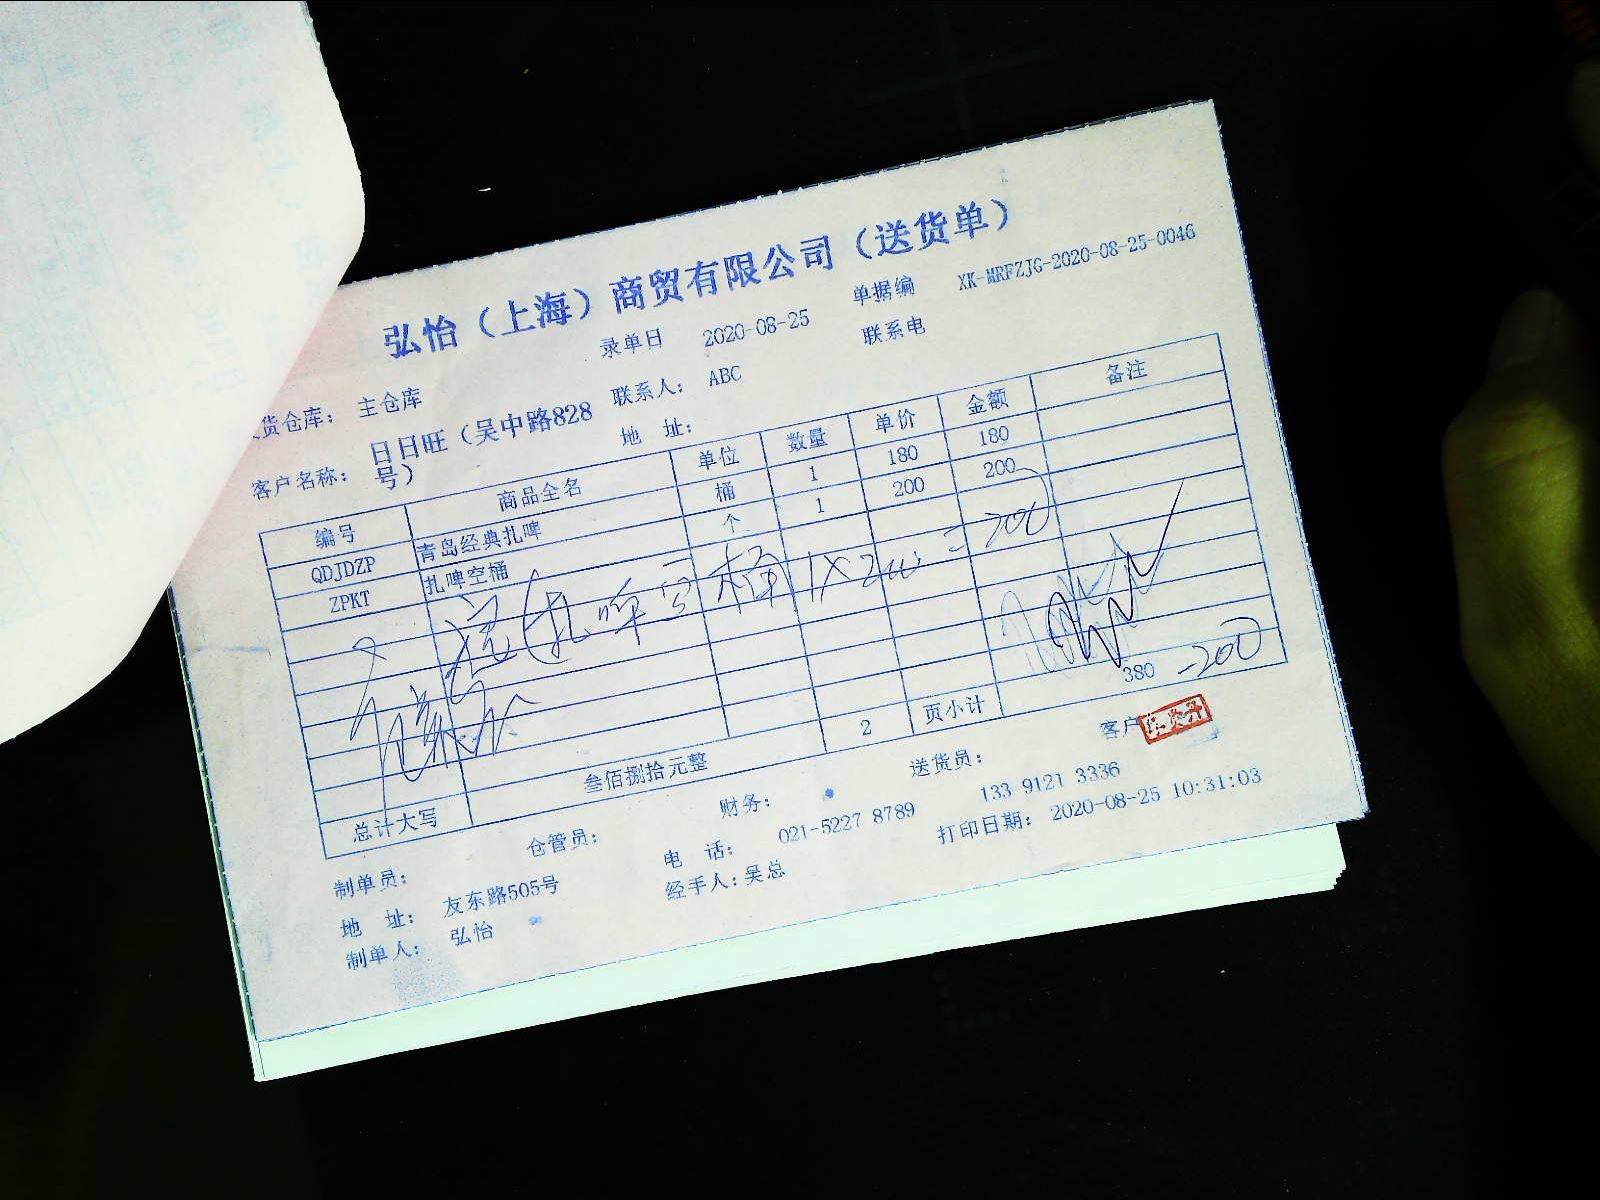 弘怡（上海）商贸有限公司（送货单）
录单日 2020-08-25 单据编 XK-MRFZJG-2020-08-25-0046
货仓库： 主仓库 联系人： ABC 联系电
客户名称： 日日旺（吴中路828号） 地 址：
编号 商品全名 单位 数量 单价 金额 备注
QDJDZP 青岛经典扎啤 桶 1 180 180
ZPKT 扎啤空桶 个 1 200 200
扎啤空桶 1×200 = 200
380 -200
2 页小计
总计大写 叁佰捌拾元整
制单员： 仓管员： 财务： 送货员： 客户
地 址： 友东路505号 电 话： 021-5227 8789 133 9121 3336
制单人： 弘怡 经手人：吴总 打印日期： 2020-08-25 10:31:03